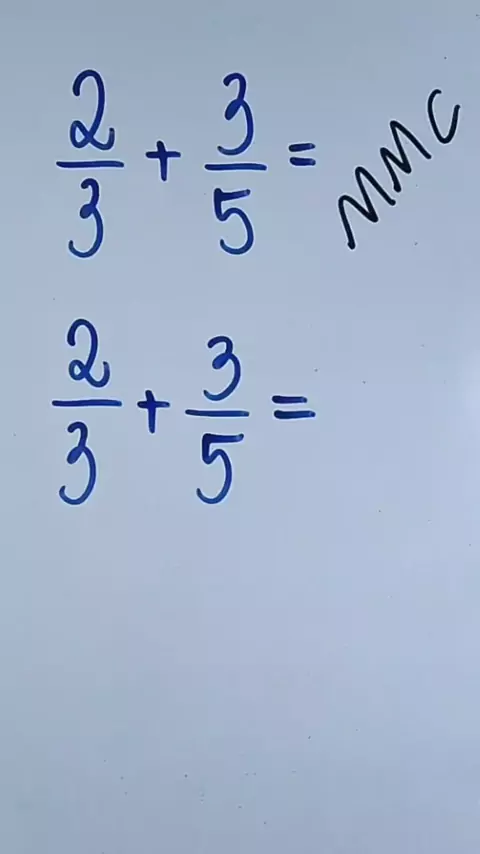 2/3 + 3/5 = MMC
2/3 + 3/5 =